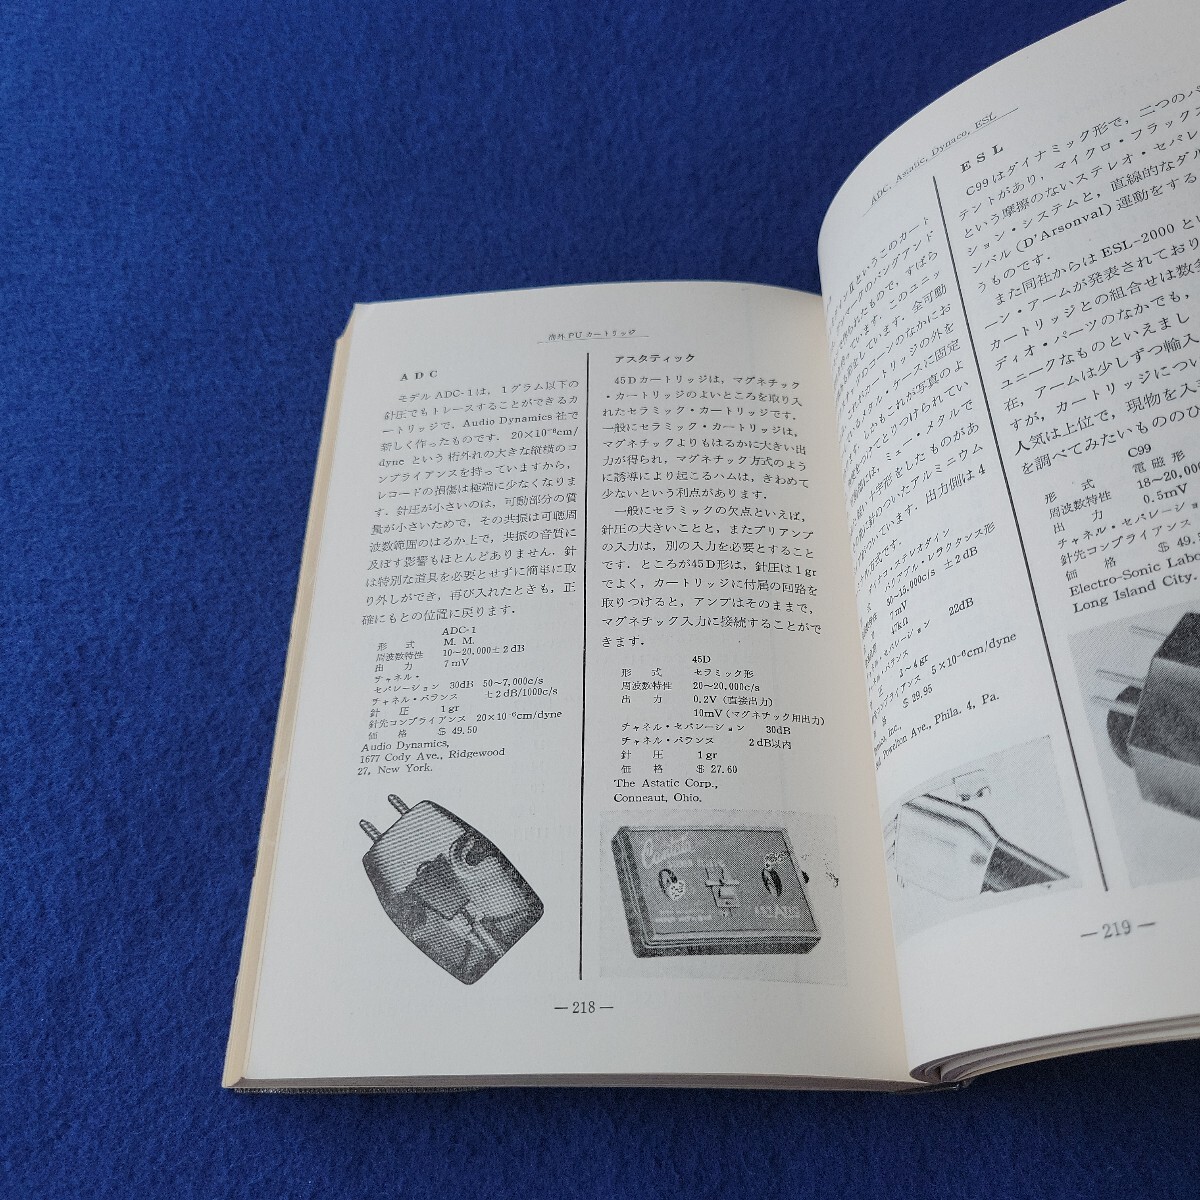 海外PUカートリッジ
ADC
モデル ADC-1は, 1グラム以下の
針圧でもトレースすることができるカ
ートリッジで, Audio Dynamics 社で
新しく作ったものです. 20×10⁻⁶cm/
dyne という桁外れの大きな縦横のコ
ンプライアンスを持っていますから,
レコードの損傷は極端に少なくなりま
す. 針圧が小さいのは, 可動部分の質
量が小さいためで, その共振は可聴周
波数範囲のはるか上で, 共振の音質に
及ぼす影響もほとんどありません. 針
は特別な道具を必要とせずに簡単に取
り外しができ, 再び入れたときも, 正
確にもとの位置に戻ります.
ADC-1
形 式 M. M.
周波数特性 10~20,000±2dB
出 力 7mV
チャネル・
セパレーション 30dB 50~7,000c/s
チャネル・バランス ±2dB/1000c/s
針 圧 1gr
針先コンプライアンス 20×10⁻⁶cm/dyne
価 格 $ 49.50
Audio Dynamics,
1677 Cody Ave., Ridgewood
27, New York.
アスタティック
45Dカートリッジは, マグネチック
・カートリッジのよいところを取り入
れたセラミック・カートリッジです.
一般にセラミック・カートリッジは,
マグネチックよりもはるかに大きい出
力が得られ, マグネチック方式のよう
に誘導により起こるハムは, きわめて
少ないという利点があります.
一般にセラミックの欠点といえば,
針圧の大きいことと, またプリアンプ
の入力は, 別の入力を必要とすること
です. ところが45D形は, 針圧は1gr
でよく, カートリッジに付属の回路を
取りつけると, アンプはそのままで,
マグネチック入力に接続することがで
きます.
45D
形 式 セラミック形
周波数特性 20~20,000c/s
出 力 0.2V (直接出力)
10mV (マグネチック用出力)
チャネル・セパレーション 30dB
チャネル・バランス 2dB以内
針 圧 1gr
価 格 $ 27.60
The Astatic Corp.,
Conneaut, Ohio.
ASTATIC
— 218 —
ADC, Astatic, Dynaco, ESL
というこのカート
のバングアンド
られたもので, すばら
います. このユニッ
しています. 全可動
コーンのなかにお
カートリッジの外を
メタル・ケースに固定
しかもこれが写真のよ
とりつけられてい
は, ミュー・メタルで
十字形をしたものがあ
針のついたアルミニウム
ついています. 出力側は4
方式です.
ステレオダイン
レラクタンス形
50~15,000c/s ±2dB
7mV
47kΩ
セパレーション 22dB
バランス
1~4gr
コンプライアンス 5×10⁻⁶cm/dyne
$ 29.95
Inc.,
Powelton Ave., Phila. 4, Pa.
ESL
C99はダイナミック形で, 二つのパ
テントがあり, マイクロ・フラックス
という摩擦のないステレオ・セパレ
ション・システムと, 直線的なダル
ンバル (D'Arsonval) 運動をする
うものです.
また同社からはESL-2000とい
ーン・アームが発表されており
カートリッジとの組合せは数多
ディオ・パーツのなかでも,
ユニークなものといえまし
在, アームは少しずつ輸入
すが, カートリッジについ
人気は上位で, 現物を入
を調べてみたいもののひ
C99
形 式 電磁形
周波数特性 18~20,000
出 力 0.5mV
チャネル・セパレーション
針先コンプライアンス
価 格 $ 49.5
Electro-Sonic Labo
Long Island City,
— 219 —